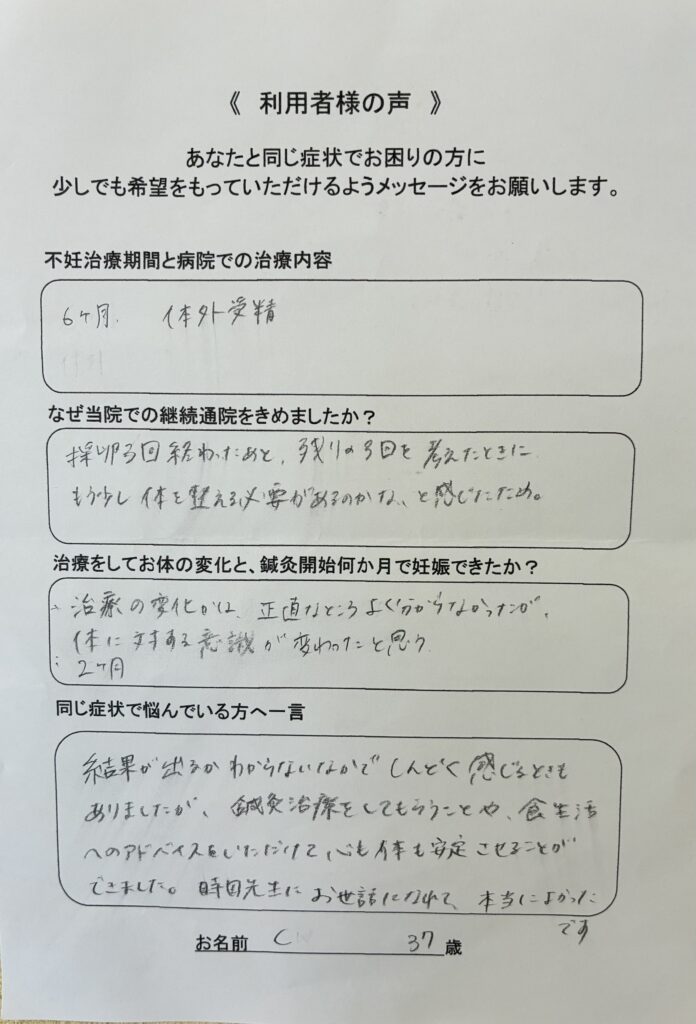 《 利用者様の声 》
あなたと同じ症状でお困りの方に
少しでも希望をもっていただけるようメッセージをお願いします。
不妊治療期間と病院での治療内容
6ヶ月. 体外受精
なぜ当院での継続通院をきめましたか？
採卵3回終わったあと、残りの3回を考えたときに
もう少し体を整える必要があるのかな、と感じたため。
治療をしてお体の変化と、鍼灸開始何か月で妊娠できたか？
治療の変化かは、正直なところよく分からなかったが、
体に対する意識が変わったと思う
2ヶ月
同じ症状で悩んでいる方へ一言
結果が出るかわからないなかでしんどく感じるときも
ありましたが、鍼灸治療をしてもらうことや、食生活
へのアドバイスをいただけて、心も体も安定させることが
できました。先生にお世話になれて、本当によかった
です
お名前 C 37歳